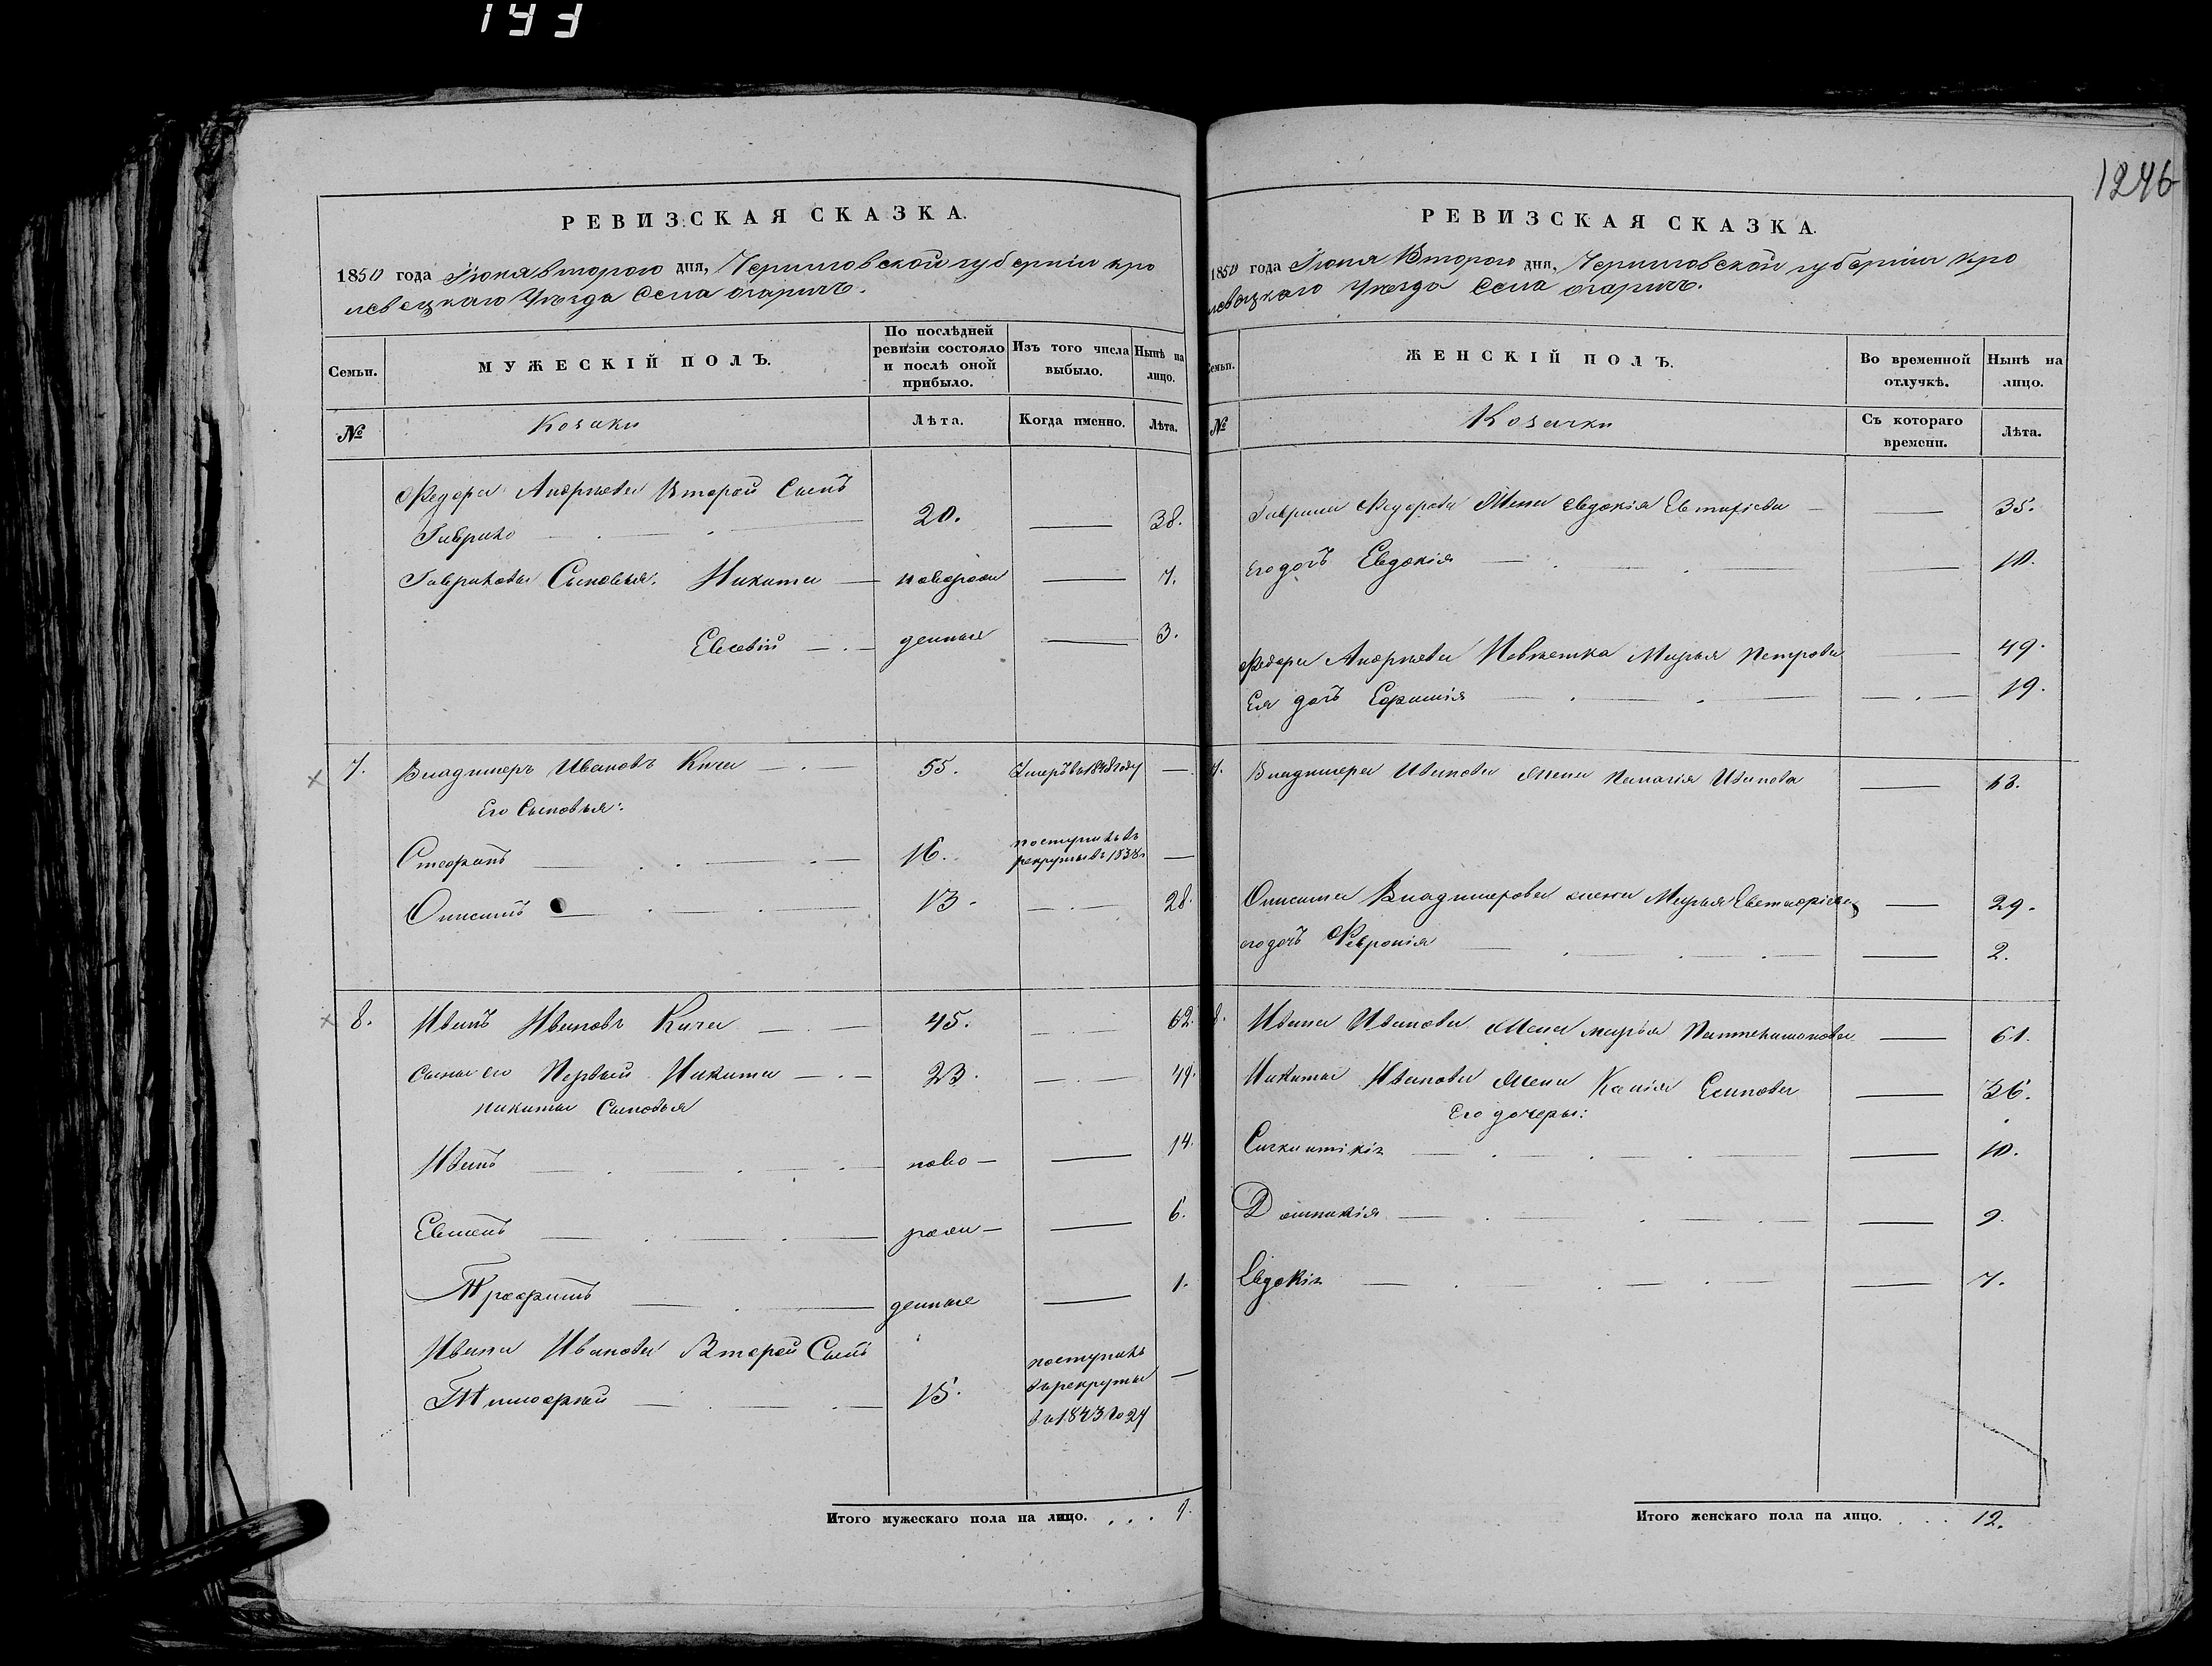 193
1246
РЕВИЗСКАЯ СКАЗКА.
1850 года Іюня второго дня, Черниговской губерніи Кро
левецкаго Уѣзда Села Огаричъ.
Семьи.
МУЖЕСКІЙ ПОЛЪ.
По послѣдней ревизіи состояло и послѣ оной прибыло.
Изъ того числа выбыло.
Нынѣ на лицо.
№
Козаки
Лѣта.
Когда именно.
Лѣта.
Федора Андрѣева Второй Сынъ
Гаврило 20. 38.
Гавриловы Сыновья: Никита новорож 7.
Евсевій денные 3.
7. Владимеръ Ивановъ Кича 55. Умеръ въ 1848 году
Его Сыновья:
Стефанъ 16. поступилъ въ
рекруты въ 1838
Онисимъ 13. 28.
8. Иванъ Ивановъ Кича 45. 62.
Сыны его Первый Никита 23.
Никиты Сыновья
Иванъ ново 14.
6.
рож
Трофимъ денные 1.
Ивана Иванова Второй Сынъ
Тимофѣй 15. поступилъ
въ рекруты
въ 1843 году
Итого мужескаго пола на лицо. . . . 9.
РЕВИЗСКАЯ СКАЗКА.
1850 года Іюня Второго дня, Черниговской губерніи Кро
левецкаго Уѣзда Села Огаричъ.
Семьи.
ЖЕНСКІЙ ПОЛЪ.
Во временной отлучкѣ.
Нынѣ на лицо.
№
Козачки
Съ котораго времени.
Лѣта.
Гаврила Федорова Жена Евдокія 35.
его дочь Евдокія 10.
Федора Андрѣева Невѣстка Марья Петрова 49.
Ея дочь 19.
7. Владимера Иванова Жена Палагія Иванова 63.
Онисима Владимерова жена Марья 29.
его дочь Февронія 2.
8. Ивана Иванова Жена Марья 61.
Никиты Иванова Жена 36.
Его дочеры:
10.
Домникія 9.
Евдокія 7.
Итого женскаго пола на лицо. . . . 12.